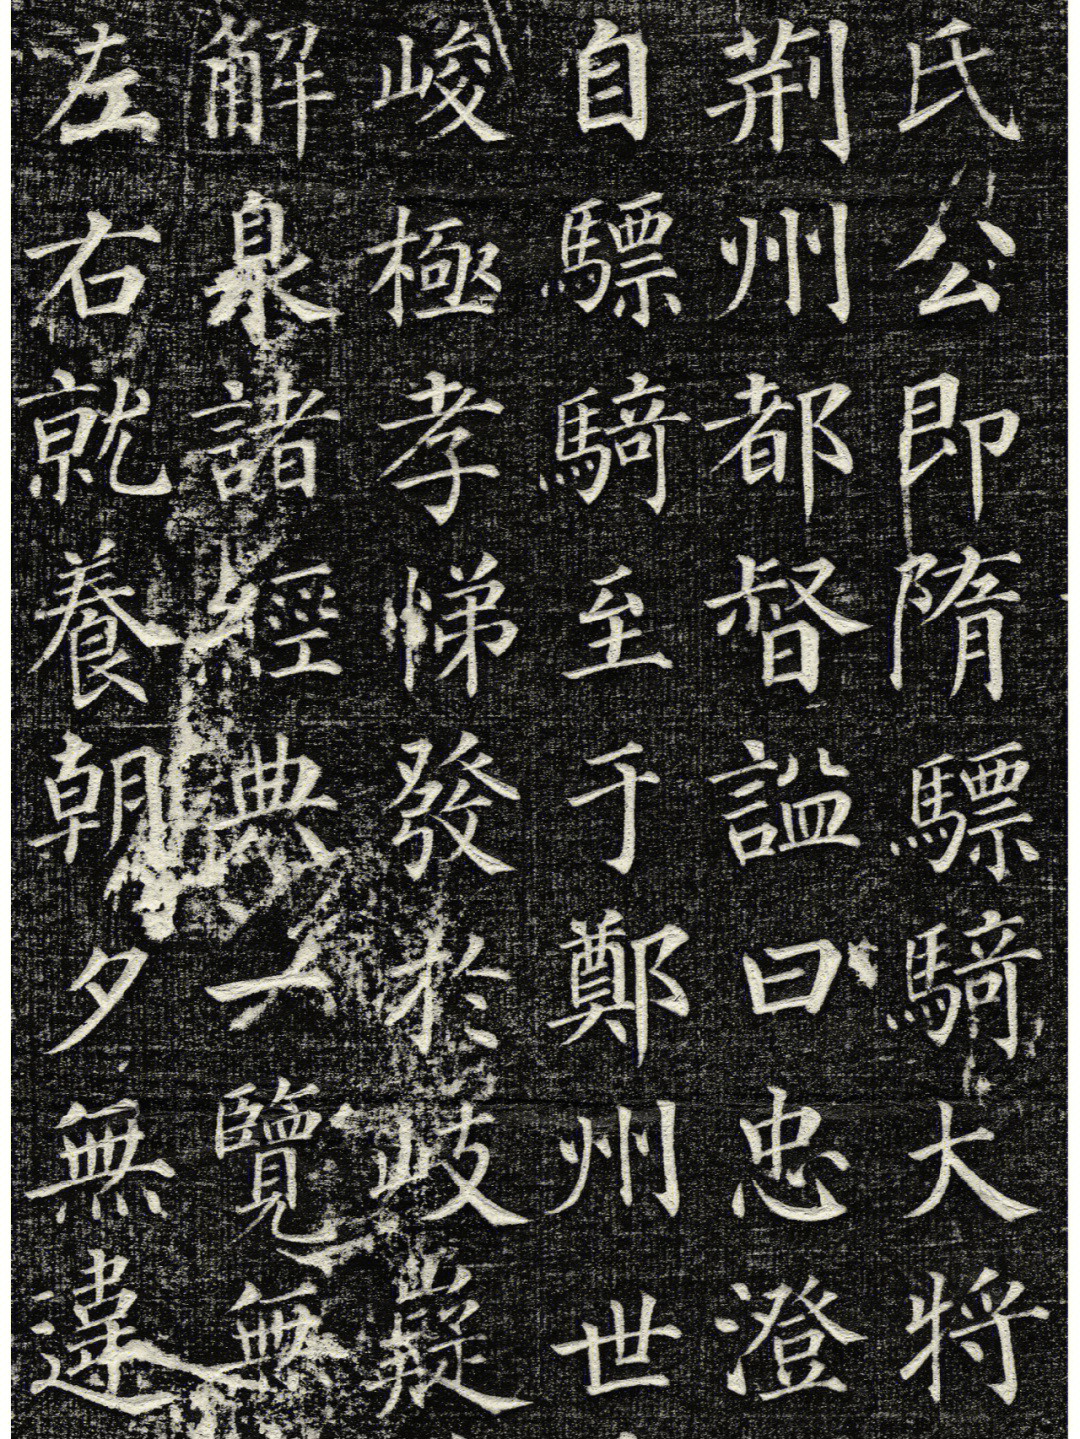 氏公即隋驃騎大将
荆州都督謚曰忠澄
自驃騎至于鄭州世
峻極孝悌發於岐嶷
解臮諸經典一覽無
左右就養朝夕無違